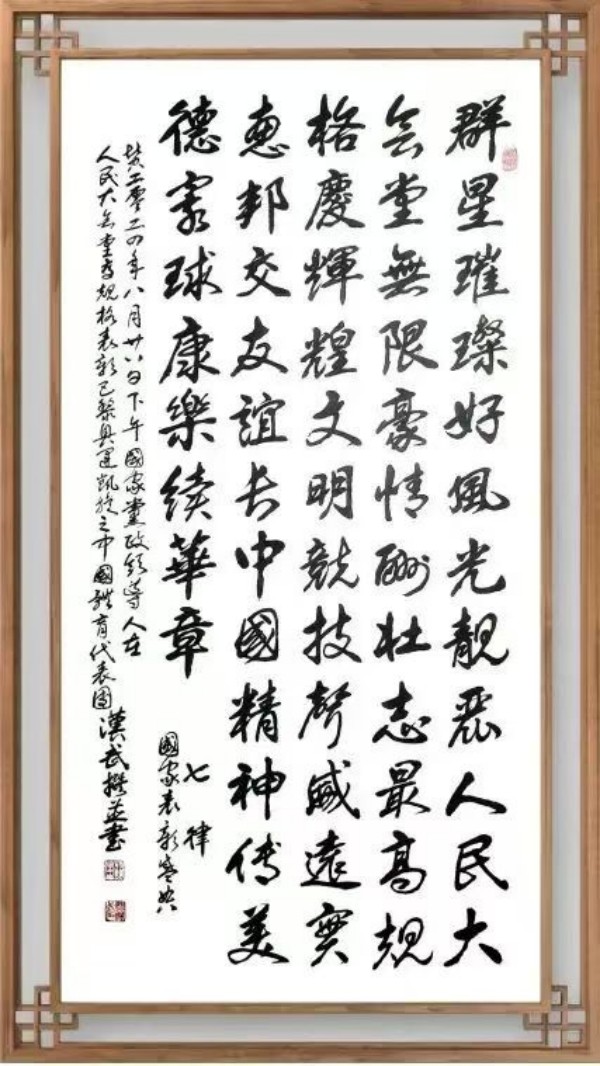 群星璀璨好風光靚麗人民大
会堂無限豪情酬壮志最高規
格慶輝煌文明競技聲威遠實
惠邦交友誼长中國精神传美
德寰球康樂續華章
七律
國家表彰盛典
贊二零二四年八月廿八日下午國家黨政領導人在
人民大会堂高規格表彰巴黎奧運凱旋之中國體育代表團 漢武撰並書